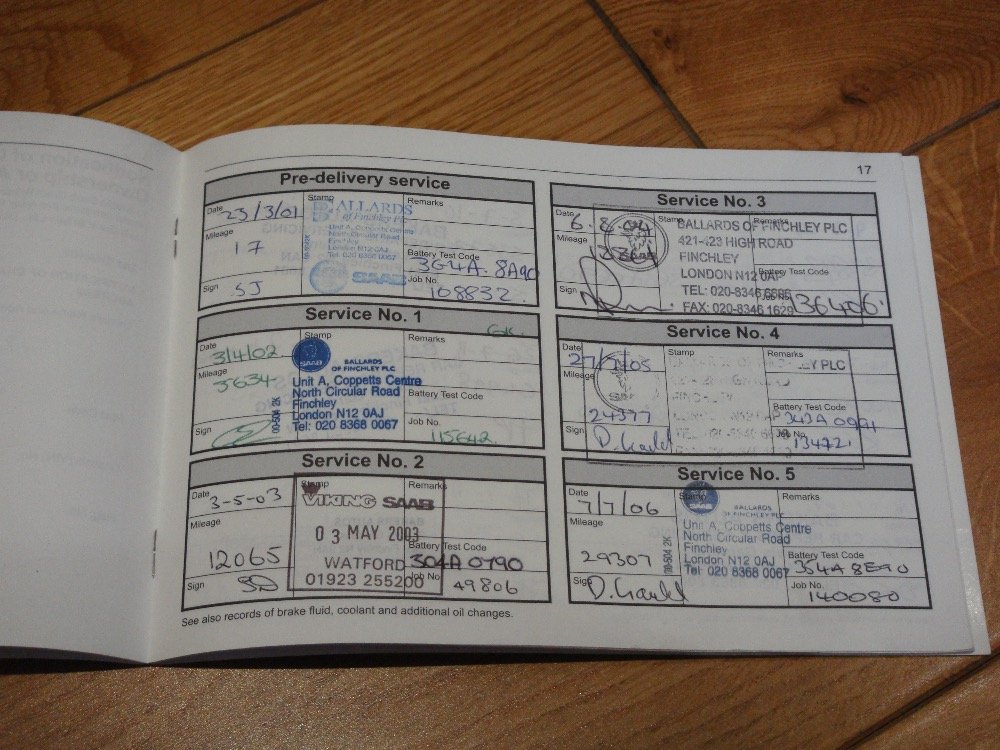 17
Pre-delivery service
Date 23/3/01
Stamp
BALLARDS
of Finchley Plc
Unit A, Coppetts Centre
North Circular Road
Finchley
London N12 0AJ
Tel: 020 8368 0067
SAAB
Remarks
Mileage
17
Battery Test Code
3G4A 8A90
Sign SJ
Job No.
108832
Service No. 1
GK
Date
3/4/02
Stamp
SAAB
BALLARDS
OF FINCHLEY PLC
Unit A, Coppetts Centre
North Circular Road
Finchley
London N12 0AJ
Tel: 020 8368 0067
00-504 2K
Remarks
Mileage
5634
Battery Test Code
Sign
Job No.
115642
Service No. 2
Date
3-5-03
Stamp
VIKING SAAB
03 MAY 2003
WATFORD
01923 255200
Remarks
Mileage
12065
Battery Test Code
304A 0790
Sign SD
Job No
49806
See also records of brake fluid, coolant and additional oil changes.
Service No. 3
Date
6.8.04
Stamp
BALLARDS OF FINCHLEY PLC
421-423 HIGH ROAD
FINCHLEY
LONDON N12 0AP
TEL: 020-8346 6696
FAX: 020-8346 1629
Remarks
Mileage
Battery Test Code
Sign
Job No.
136406
Service No. 4
Date
27/7/05
Stamp
PLC
Remarks
Mileage
24377
Battery Test Code
343A 0991
Sign
Job No.
134721
Service No. 5
Date
7/7/06
Stamp
BALLARDS
OF FINCHLEY PLC
Unit A, Coppetts Centre
North Circular Road
Finchley
London N12 0AJ
Tel: 020 8368 0067
00-504 2K
Remarks
Mileage
29307
Battery Test Code
354A 8E90
Sign
Job No.
140080